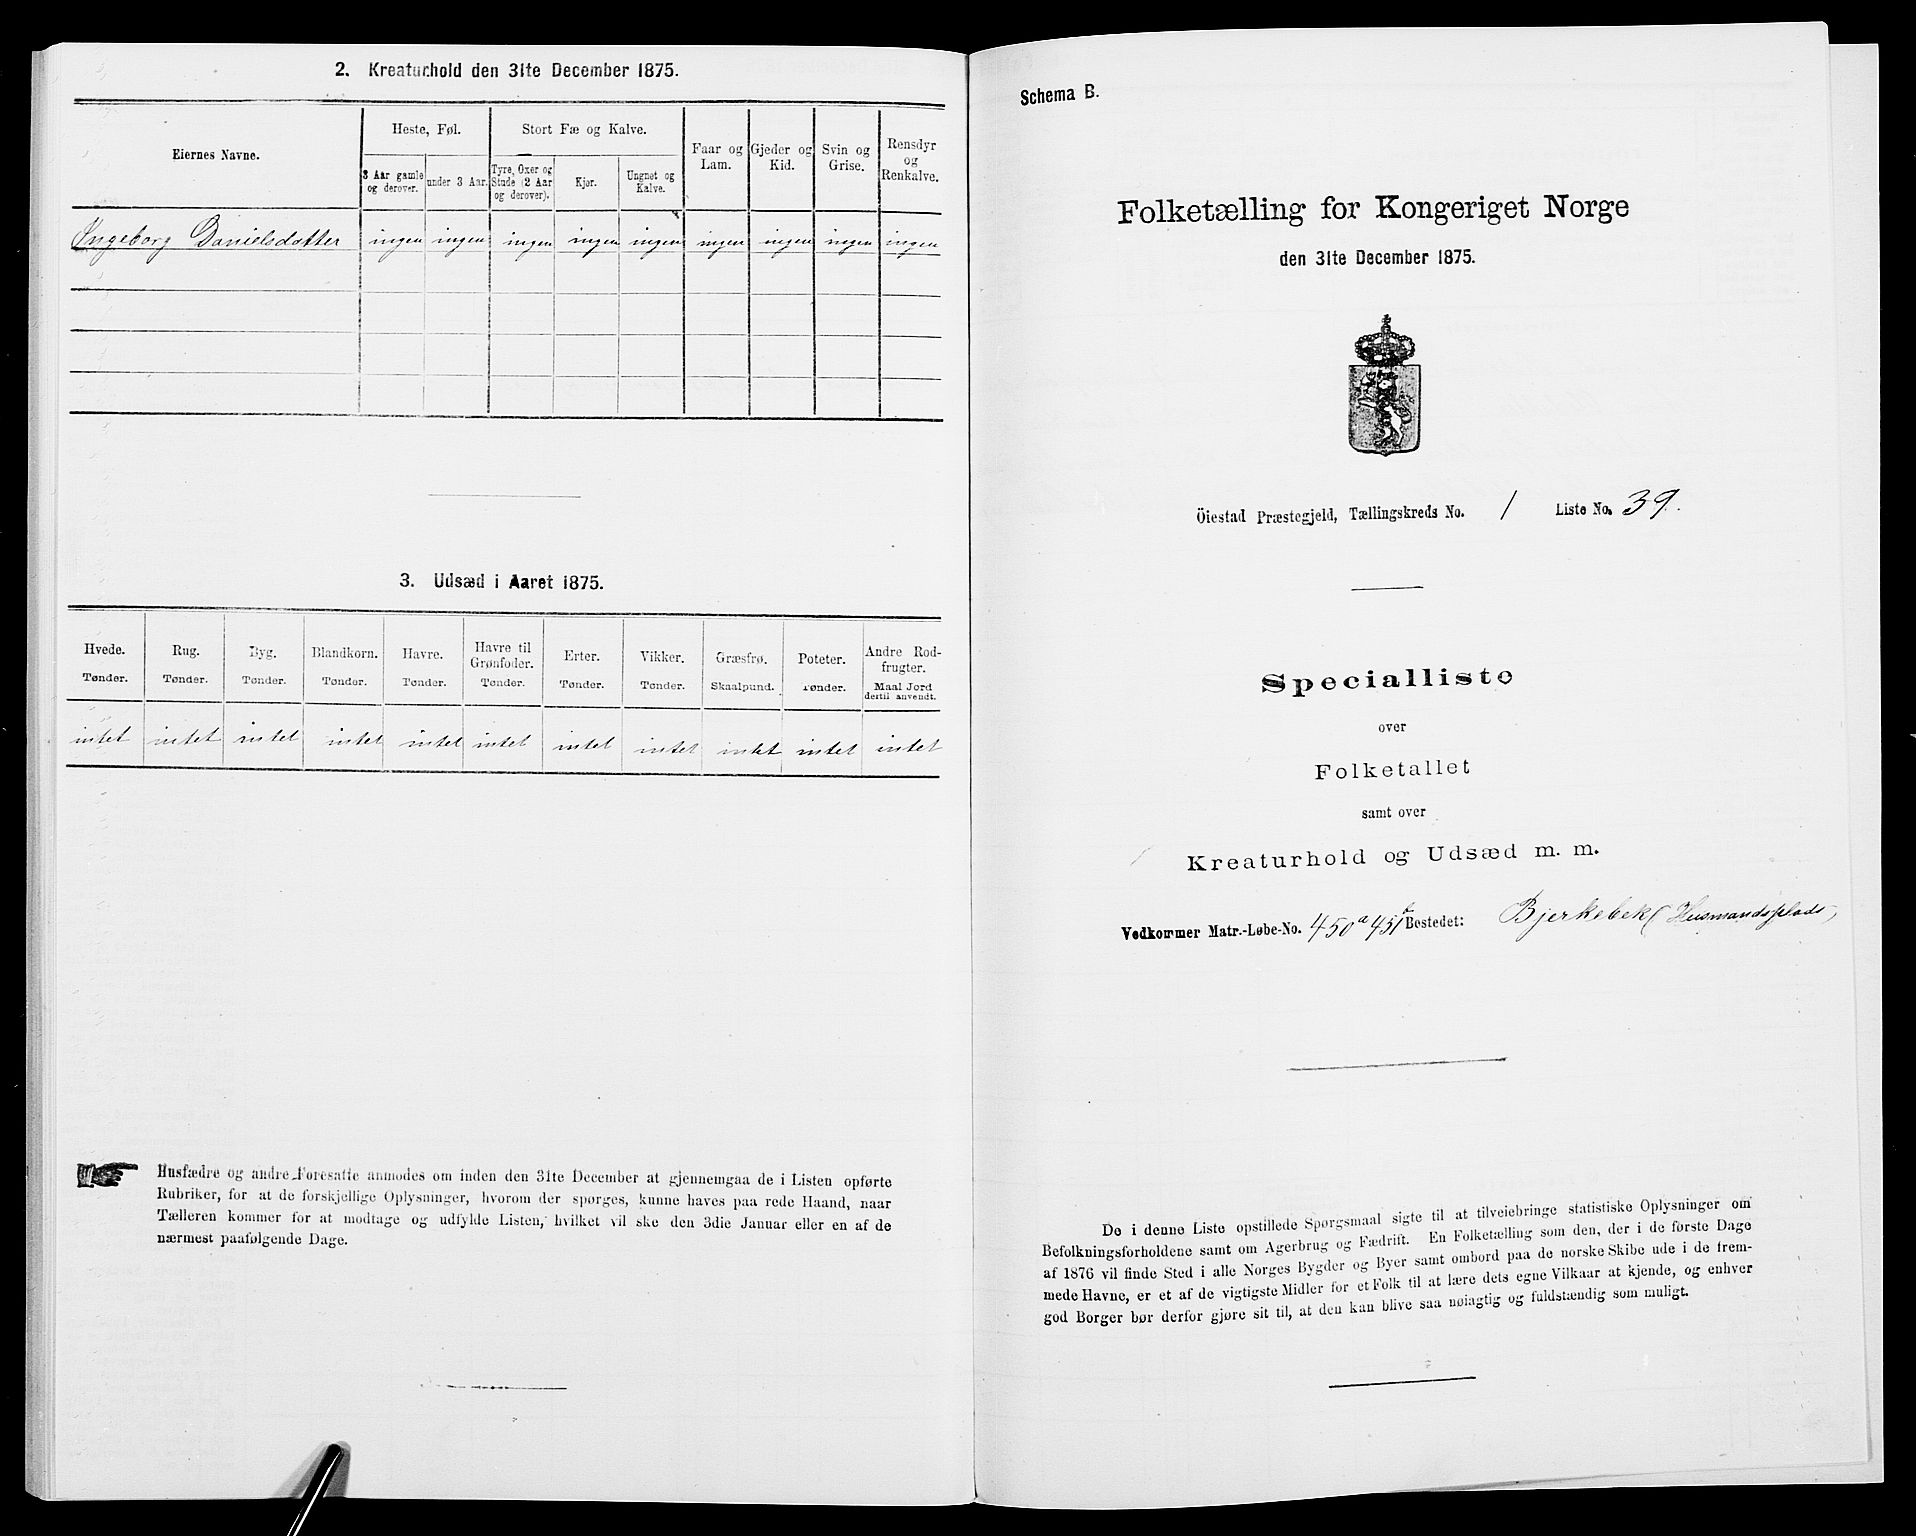 2. Kreaturhold den 31te December 1875.
Eiernes Navne.
Heste, Føl.
3 Aar gamle
og derover.
under 3 Aar.
Stort Fæ og Kalve.
Tyre, Oxer og
Stude (2 Aar
og derover).
Kjør.
Ungnet og
Kalve.
Faar og
Lam.
Gjeder og
Kid.
Svin og
Grise.
Rensdyr
og
Renkalve.
Ingeborg Danielsdatter ingen ingen ingen ingen ingen ingen ingen ingen ingen
3. Udsæd i Aaret 1875.
Hvede.
Tønder.
Rug.
Tønder.
Byg.
Tønder.
Blandkorn.
Tønder.
Havre.
Tønder.
Havre til
Grønfoder.
Tønder.
Erter.
Tønder.
Vikker.
Tønder.
Græsfrø.
Skaalpund.
Poteter.
Tønder.
Andre Rod-
frugter.
Maal Jord
dertil anvendt.
intet intet intet intet intet intet intet intet intet intet intet
Husfædre og andre Foresatte anmodes om inden den 31te December at gjennemgaa de i Listen opførte
Rubriker, for at de forskjellige Oplysninger, hvorom der spørges, kunne haves paa rede Haand, naar
Tælleren kommer for at modtage og udfylde Listen, hvilket vil ske den 3die Januar eller en af de
nærmest paafølgende Dage.
Schema B.
Folketælling for Kongeriget Norge
den 31te December 1875.
Öiestad Præstegjeld, Tællingskreds No. 1 Liste No. 39.
Specialliste
over
Folketallet
samt over
Kreaturhold og Udsæd m. m.
Vedkommer Matr.-Løbe-No. 450a 451b Bostedet: Bjerkebek (Husmandsplads)
De i denne Liste opstillede Spørgsmaal sigte til at tilveiebringe statistiske Oplysninger om
Befolkningsforholdene samt om Agerbrug og Fædrift. En Folketælling som den, der i de første Dage
af 1876 vil finde Sted i alle Norges Bygder og Byer samt ombord paa de norske Skibe ude i de frem-
mede Havne, er et af de vigtigste Midler for et Folk til at lære dets egne Vilkaar at kjende, og enhver
god Borger bør derfor gjøre sit til, at den kan blive saa nøiagtig og fuldstændig som muligt.